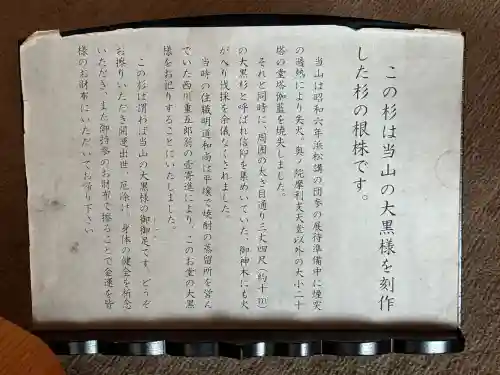 この杉は当山の大黒様を刻作
した杉の根株です。
当山は昭和六年浜松講の団参の接待準備中に煙突
の過熱により失火。奥ノ院摩利支天堂以外の大小二十
塔の堂塔伽藍を焼失しました。
それと同時に、周囲の太さ目通り三丈四尺(約十m)
の大黒杉と呼ばれ信仰を集めいていた、御神木にも火
がへり伐採を余儀なくされました。
当時の住職明道和尚は平壌で焼酎の蒸留所を営ん
でいた西川重五郎翁の壹寄進により、このお堂の大黒
様をお祀りすることにいたしました。
この杉は謂わば当山の大黒様の御御足です。どうぞ
お擦りいただき開運出世、厄除け、身体の健全を祈念
いただき、また御持参のお財布で擦ることで金運を皆
様のお財布にいただいてお帰り下さい。